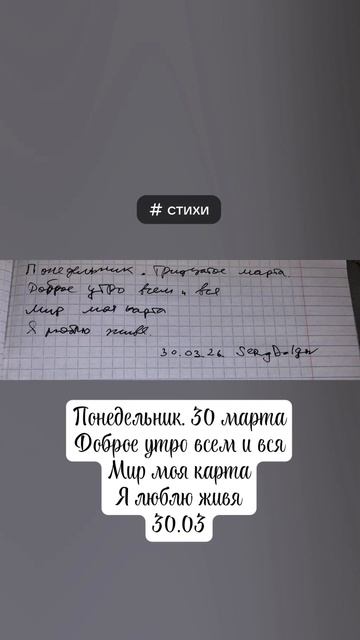 # стихи
Понедельник. Тридцатое марта
Доброе утро всем и вся
Мир моя карта
Я люблю живя
30.03.26
Понедельник. 30 марта
Доброе утро всем и вся
Мир моя карта
Я люблю живя
30.03